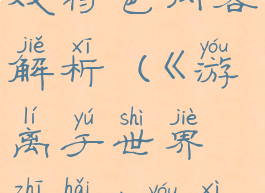 jiě xī yóu
解析（《游
lí yú shì jiè
离于世界
zhī hǎi yóu xì